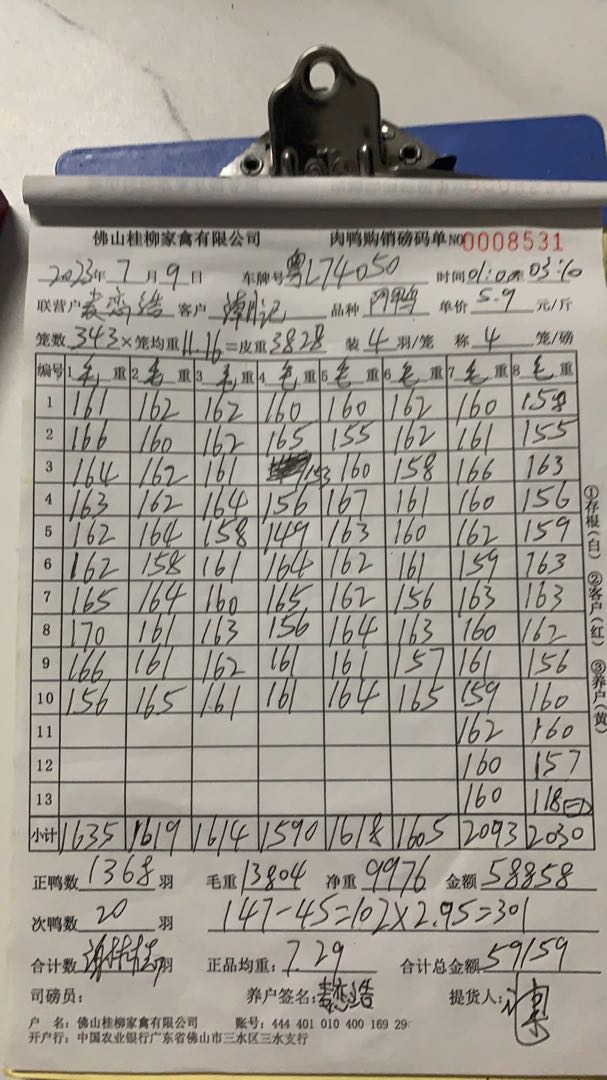 佛山桂柳家禽有限公司 肉鸭购销磅码单 NO 0008531
2023年 7月 9日 车牌号 粤L74050 时间 01:00 03:10
联营户 麦恋浩 客户 记 品种 鸭 单价 5.9 元/斤
笼数 343 × 笼均重 11.16 = 皮重 3828 装 4 羽/笼 称 4 笼/磅
编号 1 毛 重 2 毛 重 3 毛 重 4 毛 重 5 毛 重 6 毛 重 7 毛 重 8 毛 重
1 161 162 162 160 160 162 160 158
2 166 160 162 165 155 162 161 155
3 164 162 161 153 160 158 166 163
4 163 162 164 156 167 161 160 156
5 162 164 158 149 163 160 162 159
6 162 158 161 164 162 161 159 163
7 165 164 160 165 162 156 163 163
8 170 161 163 156 164 163 160 162
9 166 161 162 161 161 157 161 156
10 156 165 161 161 164 165 159 160
11 162 160
12 160 157
13 160 118
小计 1635 1619 1614 1590 1618 1605 2093 2030
正鸭数 1368 羽 毛重 13804 净重 9976 金额 58858
次鸭数 20 羽 147-45=102×2.95=301
合计数 羽 正品均重: 7.29 合计总金额 59159
司磅员: 养户签名: 麦恋浩 提货人:
户 名: 佛山桂柳家禽有限公司 账号: 444 401 010 400 169 29
开户行: 中国农业银行广东省佛山市三水区三水支行
①存根(白) ②客户(红) ③养户(黄)